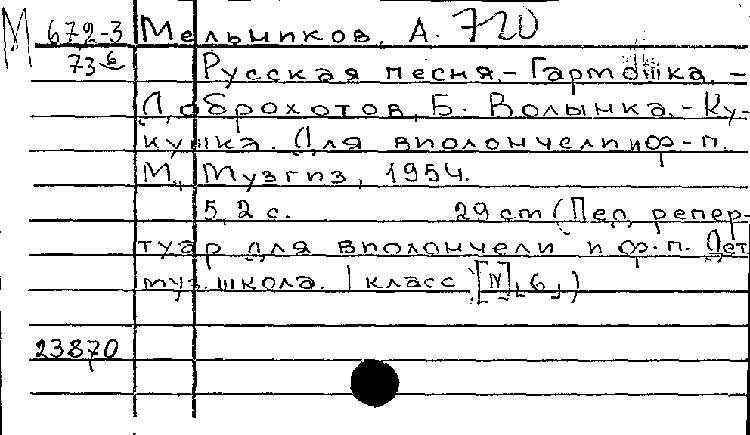 М 672-3 Мельников, А. 720
73 6 Русская песня.- Гармошка. -
Доброхотов, Б. Волынка. - Ку-
кушка. Для виолончели и ф-п.
М., Музгиз, 1954.
5, 2 с. 29 cm (Пед. репер-
туар для виолончели и ф.-п. Дет
муз. школа. I класс [N 6])
23870